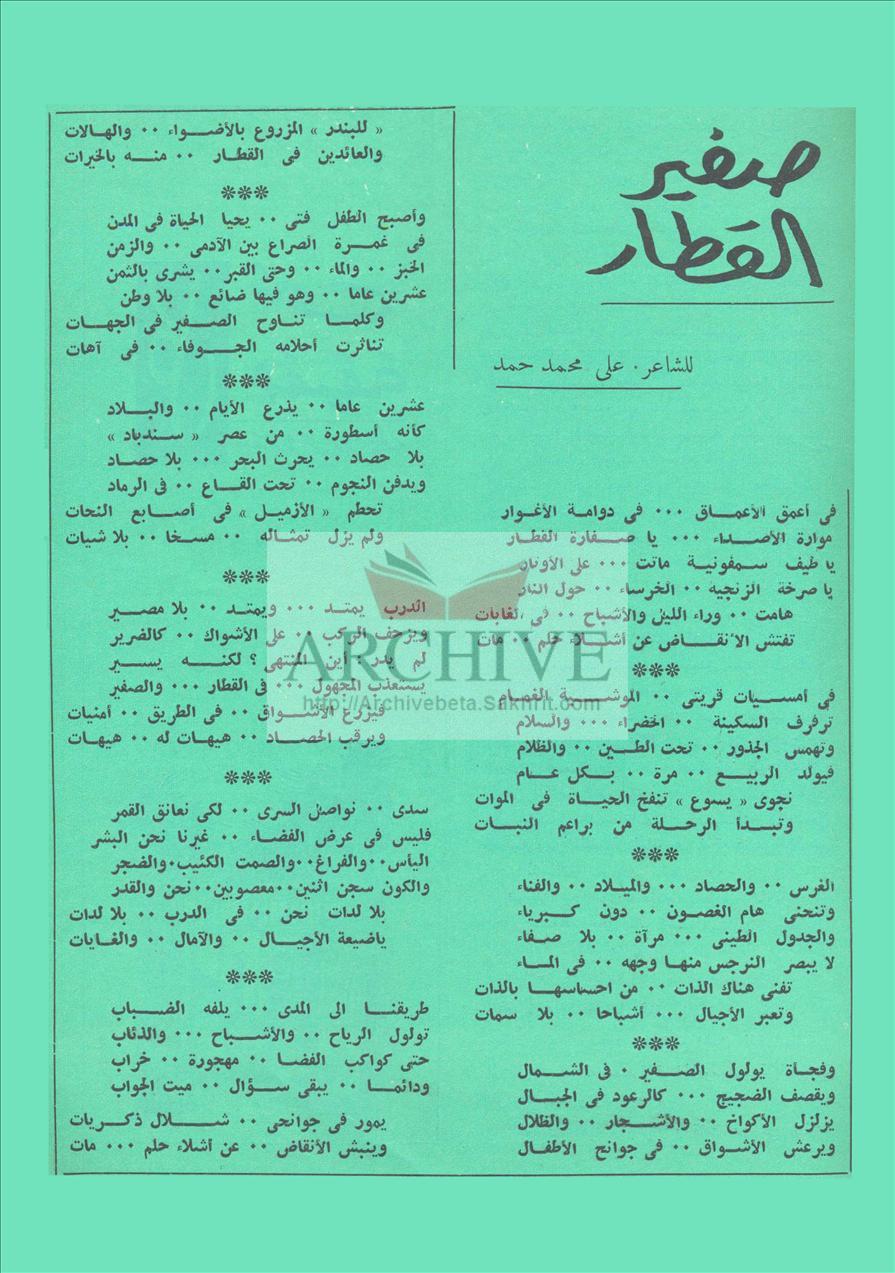 صفير
القطار
للشاعر . على محمد حمد
فى أعمق الأعماق ... فى دوامة الأغوار
موارة الأصداء ... يا صفارة القطار
يا طيف سمفونية ماتت ... على الأوتار
يا صرخة الزنجيه .. الخرساء .. حول النار
هامت .. وراء الليل والأشباح .. فى الغابات
تفتش الأنقاض عن أشلاء حلم .. مات
***
فى أمسيات قريتى .. الموشية الغمام
ترفرف السكينة .. الخضراء ... والسلام
وتهمس الجذور .. تحت الطين .. والظلام
فيولد الربيع .. مرة .. بكل عام
نجوى « يسوع » تنفخ الحياة فى الموات
وتبدأ الرحلة من براعم النبات
***
الغرس .. والحصاد ... والميلاد .. والفناء
وتنحنى هام الغصون .. دون كبرياء
والجدول الطينى ... مرآة .. بلا صفاء
لا يبصر النرجس منها وجهه .. فى الماء
تفنى هناك الذات .. من احساسها بالذات
وتعبر الأجيال ... أشباحا .. بلا سمات
***
وفجاة يولول الصفير . فى الشمال
ويقصف الضجيج ... كالرعود فى الجبال
يزلزل الأكواخ .. والأشجار .. والظلال
ويرعش الأشواق .. فى جوانح الأطفال
« للبندر » المزروع بالأضواء .. والهالات
والعائدين فى القطار .. منه بالخيرات
***
وأصبح الطفل فتى .. يحيا الحياة فى المدن
فى غمرة الصراع بين الآدمى .. والزمن
الخبز .. والماء .. وحتى القبر .. يشرى بالثمن
عشرين عاما .. وهو فيها ضائع .. بلا وطن
وكلما تناوح الصفير فى الجهات
تناثرت أحلامه الجوفاء .. فى آهات
***
عشرين عاما .. يذرع الأيام .. والبلاد
كأنه أسطورة .. من عصر « سندباد »
بلا حصاد .. يحرث البحر ... بلا حصاد
ويدفن النجوم .. تحت القاع .. فى الرماد
تحطم « الأزميل » فى أصابع النحات
ولم يزل تمثاله .. مسخا .. بلا شيات
***
الدرب يمتد ... ويمتد .. بلا مصير
ويزحف الركب .. على الأشواك .. كالضرير
لم يدر : أين المنتهى ؟ لكنه يسير
يستعذب المجهول ... فى القطار ... والصفير
فيزرع الأشواق .. فى الطريق .. أمنيات
ويرقب الحصاد .. هيهات له .. هيهات
***
سدى .. نواصل السرى .. لكى نعانق القمر
فليس فى عرض الفضاء .. غيرنا نحن البشر
اليأس..والفراغ..والصمت الكئيب.والضجر
والكون سجن اثنين..معصوبين..نحن والقدر
بلا لدات نحن .. فى الدرب .. بلا لدات
ياضيعة الأجيال .. والآمال .. والغايات
***
طريقنا الى المدى ... يلفه الضباب
تولول الرياح .. والأشباح ... والذئاب
حتى كواكب الفضا .. مهجورة .. خراب
ودائما .. يبقى سؤال .. ميت الجواب
يمور فى جوانحى .. شلال ذكريات
وينبش الأنقاض .. عن أشلاء حلم ... مات
ARCHIVE
http://Archivebeta.Sakhrit.com